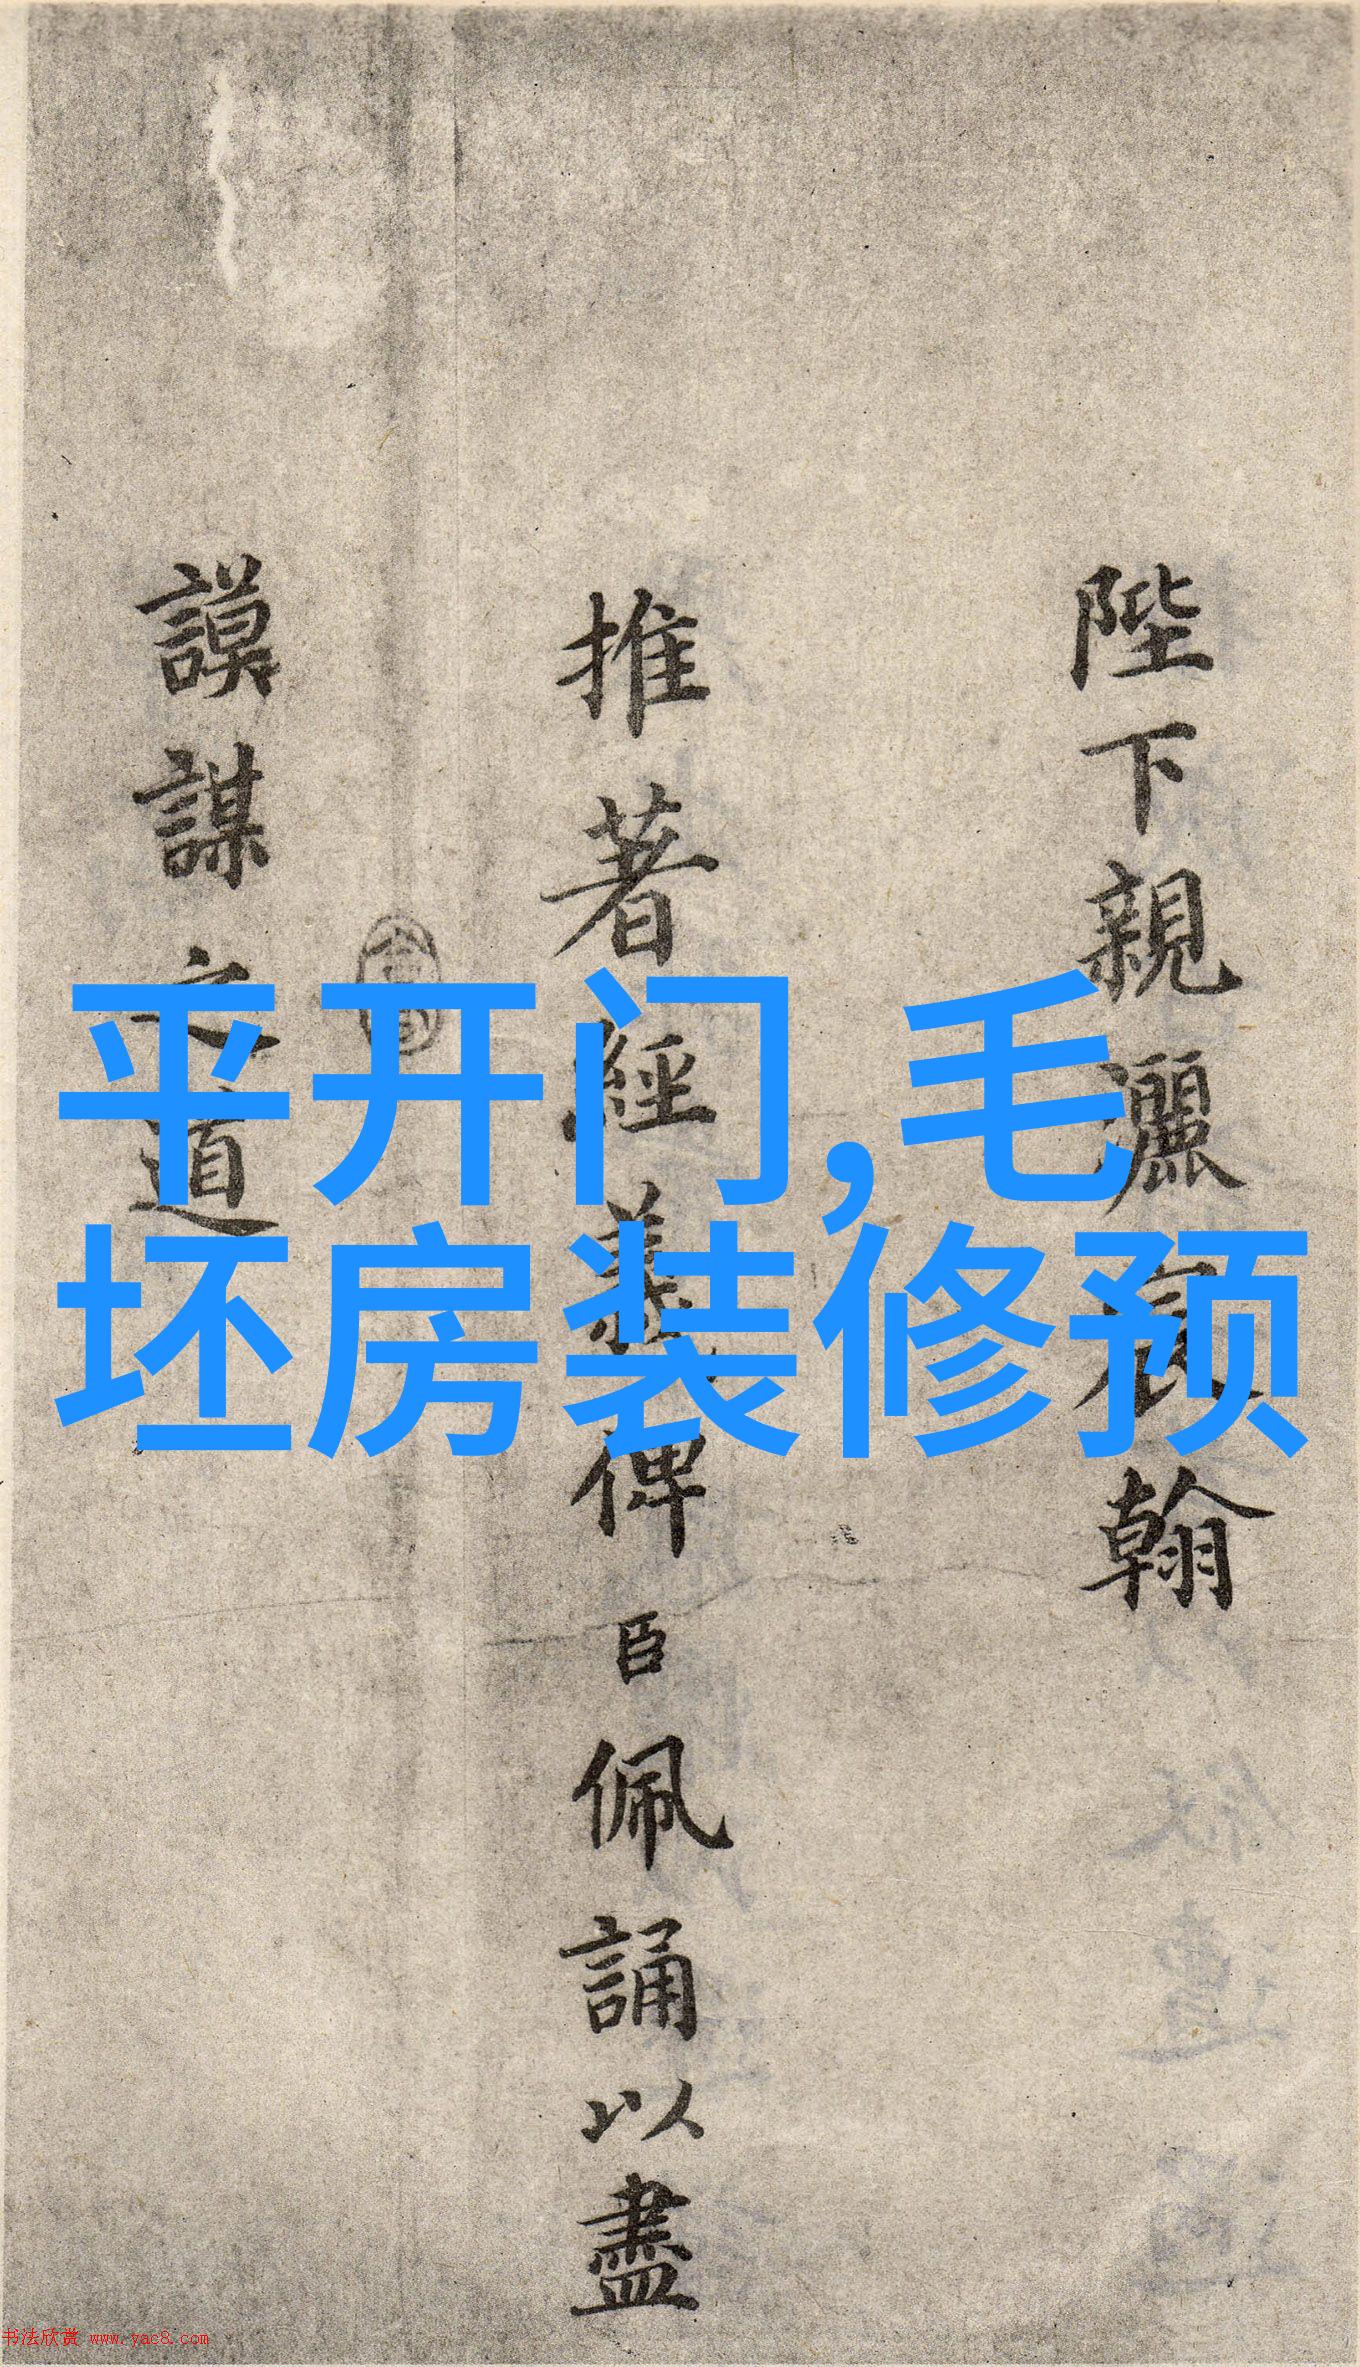 陛下親灑宸翰
推著經義俾臣佩誦以盡
謨謀之道
平开门,毛
坯房装修预
书法欣赏 www.yac8.com